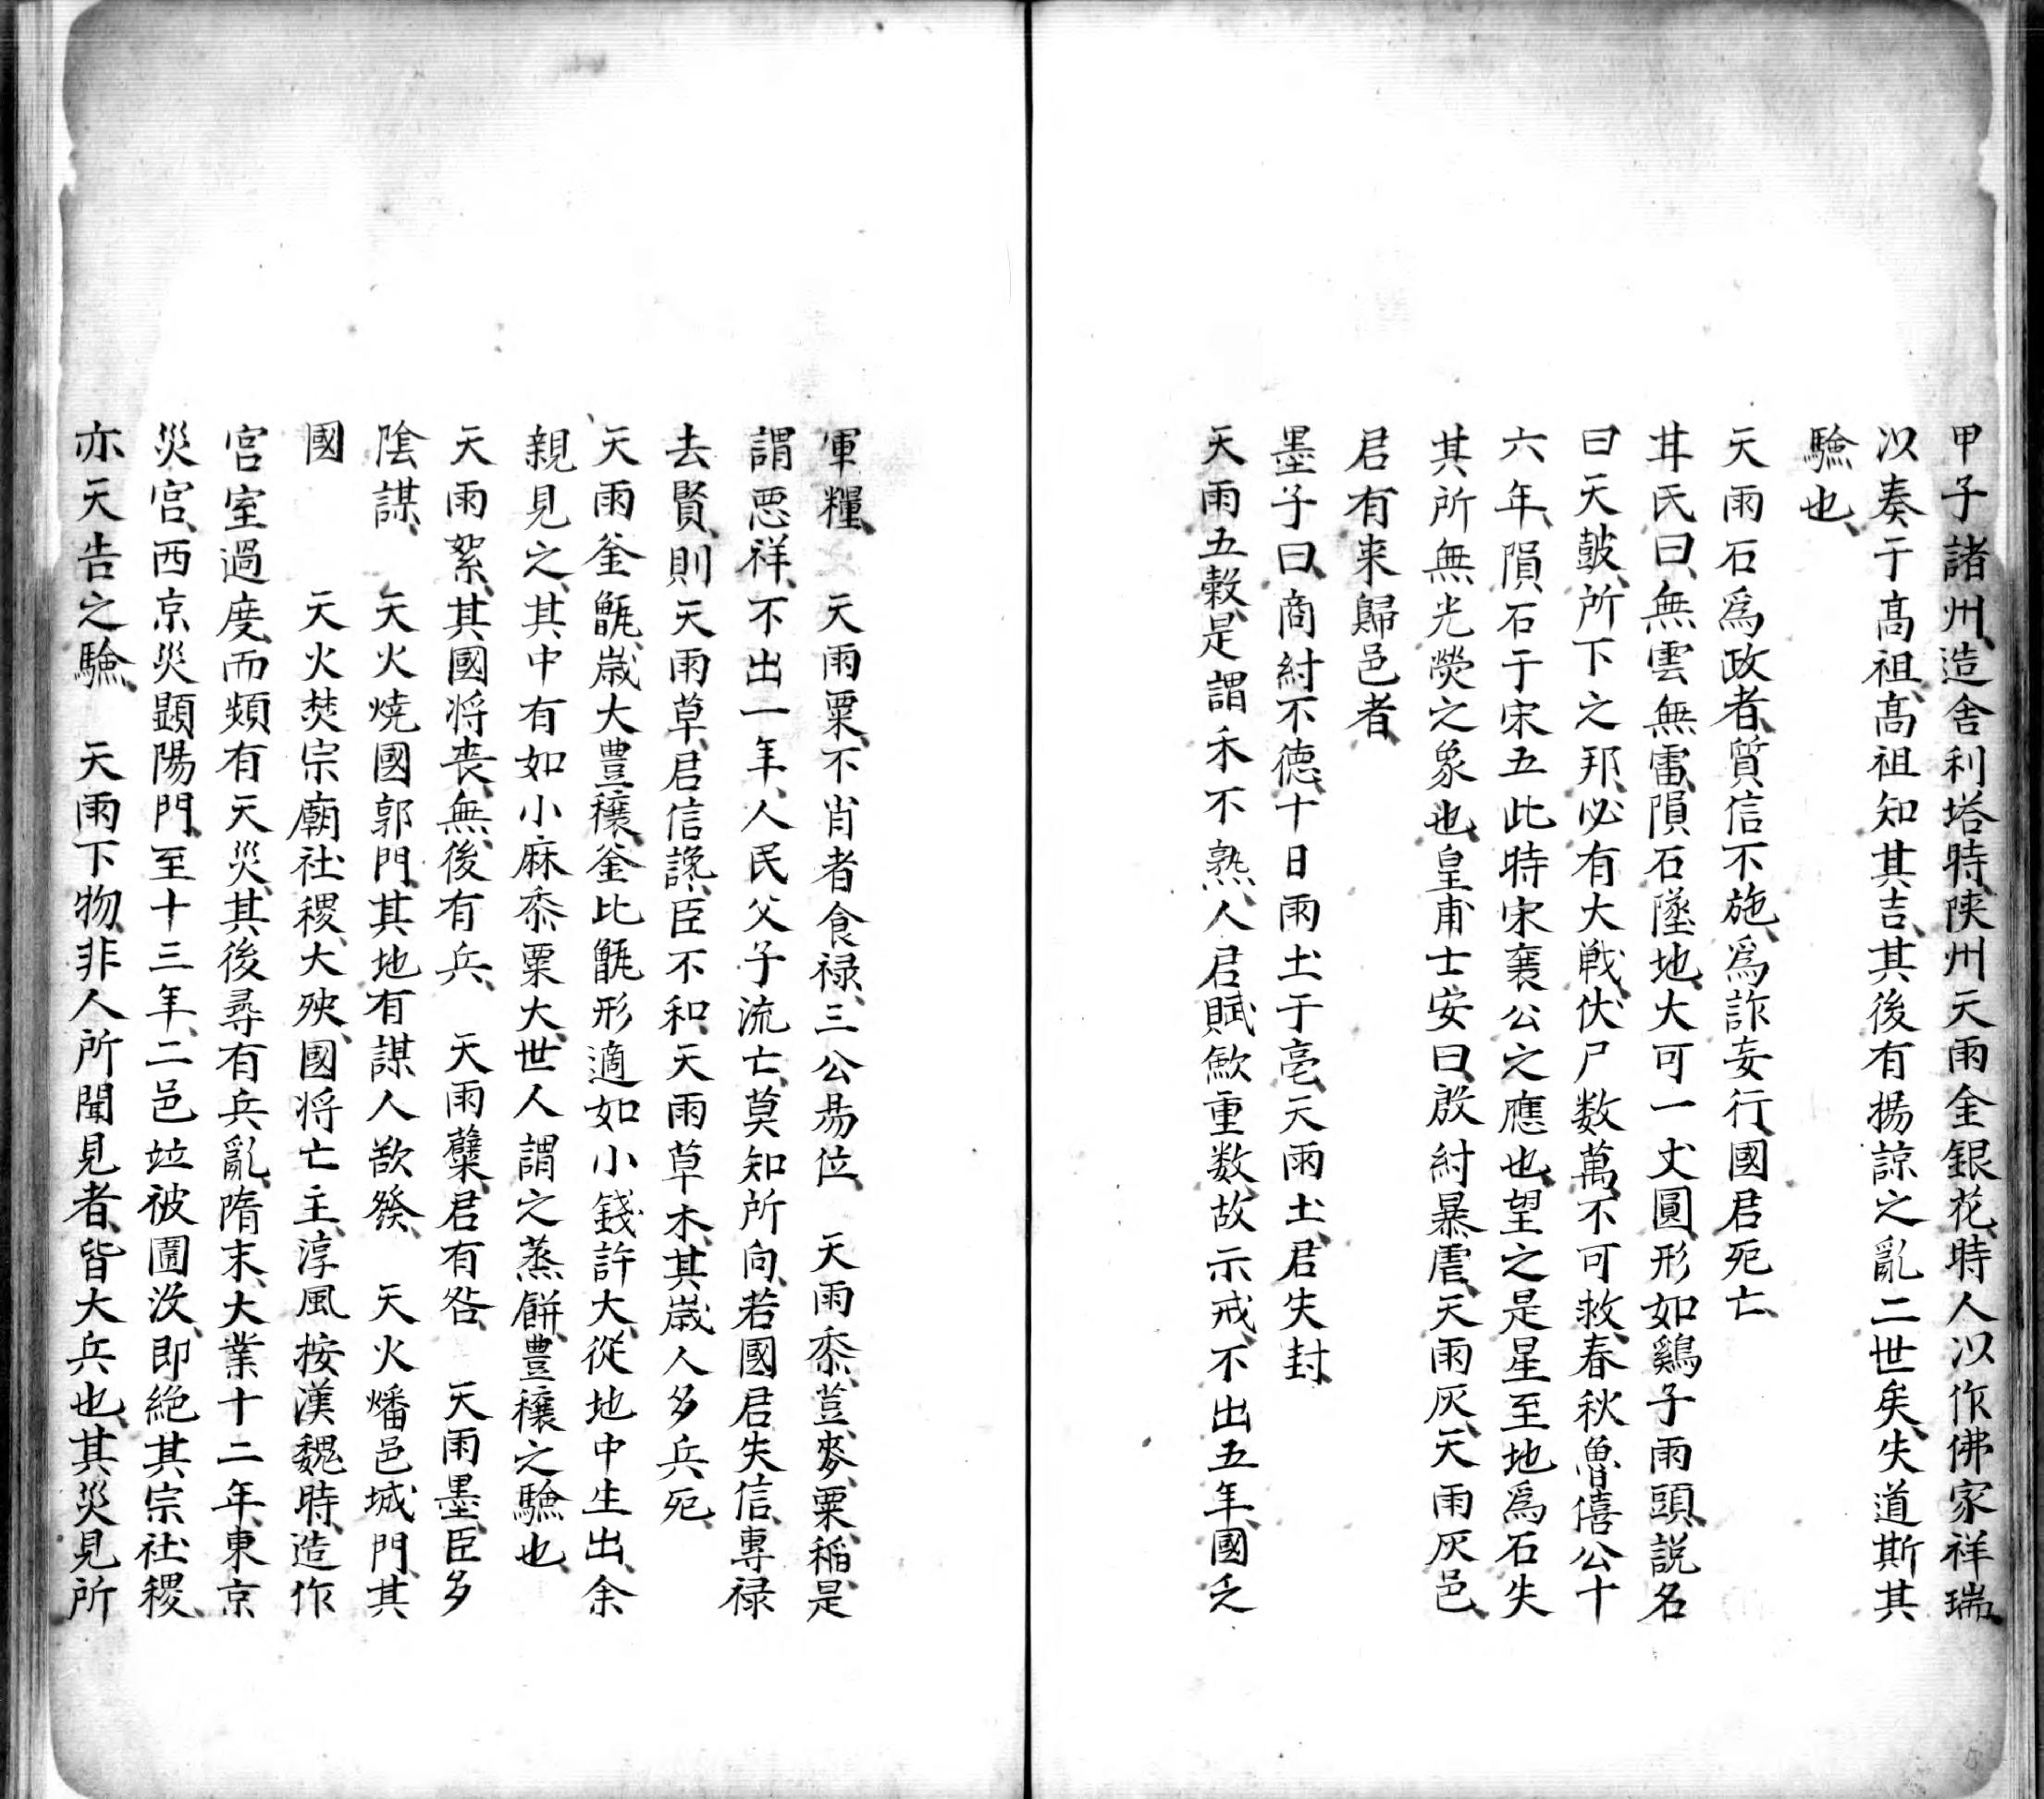 甲子諸州、造舍利塔時、陝州天雨金銀花、時人以作佛家祥瑞、
以奏于高祖、高祖知其吉、其後有揚諒之亂二世矣、失道斯其
驗也、
天雨石爲政者、質信不施、爲詐妄行、國君死亡、
甘氏曰、無雲無雷、隕石墜地、大可一丈、圓形如鷄子兩頭、説名
曰天皷、所下之邦、必有大戰、伏尸数萬、不可救、春秋魯僖公十
六年、隕石于宋五此時宋襄公之應也、望之是星至地爲石失
其所無光熒之象也、皇甫士安曰、殷紂暴虐、天雨灰、天雨灰邑、
君有来歸邑者、
墨子曰、商紂不德、十日雨土于亳、天雨土、君失封、
天雨五穀、是謂禾不熟、人君賦歛重数故示戒、不出五年、國乏
軍糧、　天雨粟、不肖者食禄、三公昜位、　天雨黍、荳、麥、粟、稲是
謂悪祥、不出一年、人民父子流亡、莫知所向、若國君失信、專禄
去賢、則天雨草、君信讒、臣不和、天雨草木、其歳人多兵死、
天雨釜甑、歳大豊穰、釜比甑形適如小錢許大、從地中生出、余
親見之、其中有如小麻黍粟大、世人謂之蒸餅、豊穰之驗也、
天雨絮、其國将丧、無後有兵、　天雨櫱、君有咎、　天雨墨、臣多
陰謀、　天火焼國郭門、其地有謀人欲發、　天火燔邑城門、其
國　　天火焚宗廟社稷、大殃、國将亡主、淳風按漢魏時、造作
宮室過度、而頻有天災、其後尋有兵亂、隋末、大業十二年、東京
災宮、西京災顯陽門、至十三年、二邑竝被圍没、即絶其宗社稷、
亦天告之驗、　天雨下物、非人所聞見者、皆大兵也、其災見所